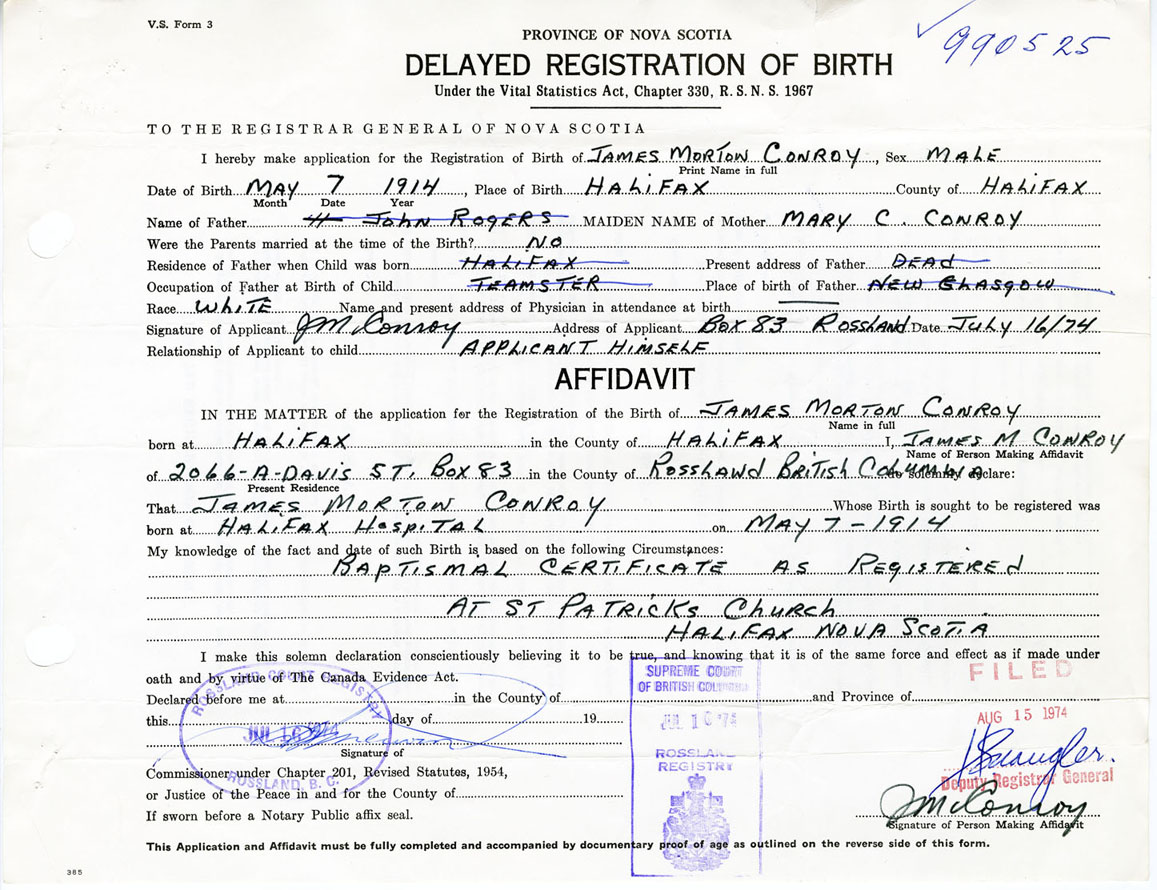 V.S. Form 3
990525
PROVINCE OF NOVA SCOTIA
DELAYED REGISTRATION OF BIRTH
Under the Vital Statistics Act, Chapter 330, R.S.N.S. 1967
TO THE REGISTRAR GENERAL OF NOVA SCOTIA
I hereby make application for the Registration of Birth of JAMES MORTON CONROY, Sex MALE
Print Name in full
Date of Birth MAY 7 1914, Place of Birth HALIFAX County of HALIFAX
Month Date Year
Name of Father JOHN ROGERS MAIDEN NAME of Mother MARY C. CONROY
Were the Parents married at the time of the Birth? NO
Residence of Father when Child was born HALIFAX Present address of Father DEAD
Occupation of Father at Birth of Child TEAMSTER Place of birth of Father NEW GLASGOW
Race WHITE Name and present address of Physician in attendance at birth
Signature of Applicant J McConroy Address of Applicant BOX 83 ROSSLAND Date JULY 16/74
Relationship of Applicant to child APPLICANT HIMSELF
AFFIDAVIT
IN THE MATTER of the application for the Registration of the Birth of JAMES MORTON CONROY
Name in full
born at HALIFAX in the County of HALIFAX I, JAMES M CONROY
Name of Person Making Affidavit
of 2066-A-DAVIS ST. BOX 83 in the County of ROSSLAND BRITISH COLUMBIA do solemnly declare:
Present Residence
That JAMES MORTON CONROY Whose Birth is sought to be registered was
born at HALIFAX HOSPITAL on MAY 7-1914
My knowledge of the fact and date of such Birth is based on the following Circumstances:
BAPTISMAL CERTIFICATE AS REGISTERED
AT ST PATRICKS CHURCH
HALIFAX NOVA SCOTIA
I make this solemn declaration conscientiously believing it to be true, and knowing that it is of the same force and effect as if made under
oath and by virtue of The Canada Evidence Act.
Declared before me at in the County of and Province of
this day of 19
Signature of
Commissioner under Chapter 201, Revised Statutes, 1954,
or Justice of the Peace in and for the County of
If sworn before a Notary Public affix seal.
ROSSLAND COURT REGISTRY
JUL 16 1974
ROSSLAND, B.C.
SUPREME COURT
OF BRITISH COLUMBIA
ROSSLAND
REGISTRY
FILED
AUG 15 1974
Deputy Registrar General
J McConroy
Signature of Person Making Affidavit
This Application and Affidavit must be fully completed and accompanied by documentary proof of age as outlined on the reverse side of this form.
385